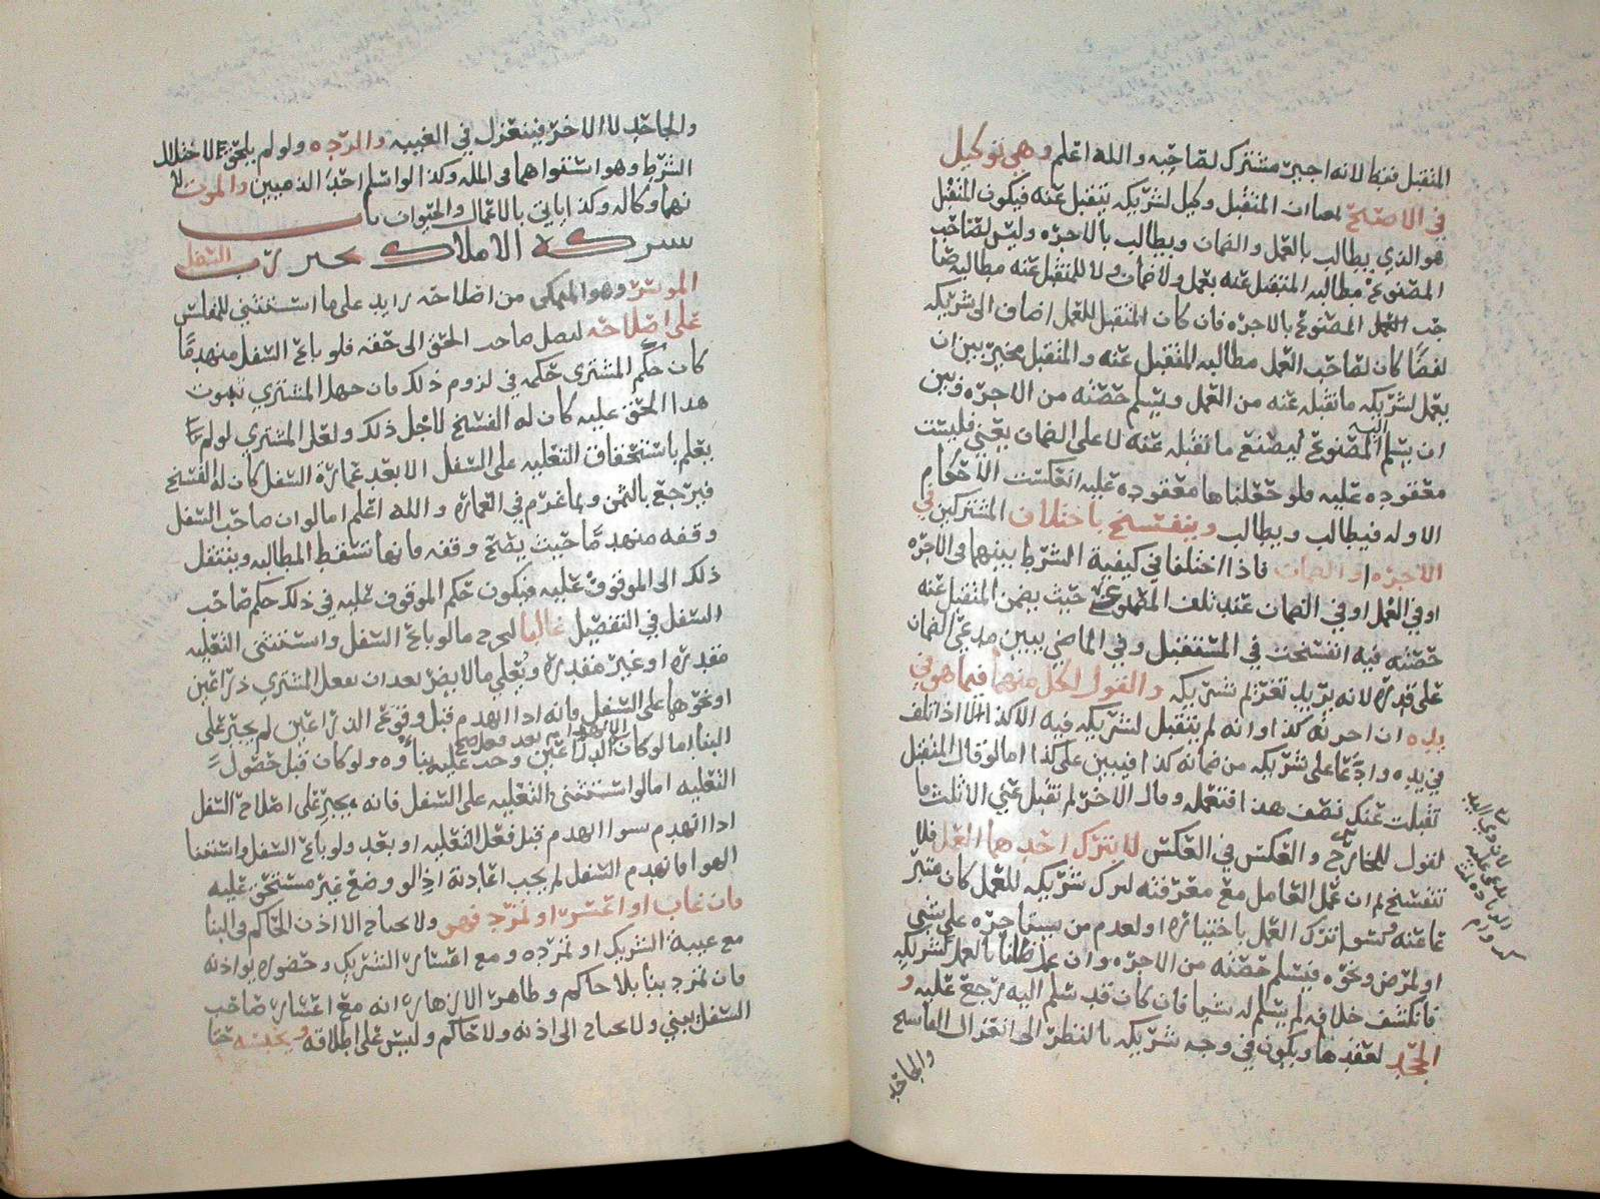 المتقبل فقط لانه اجير مشترك لصاحبه والله اعلم وهي توكيل
في الاصح لمعنا ان المتقبل وكيل لشريكه يتقبل عنه فيكون المتقبل
هو الذي يطالب بالعمل والضمان ويطالب بالاجره وليس لصاحب
المصنوع مطالبه المتقبل عنه بعمل ولا ضمان ولا للمتقبل عنه مطالبه صا
حب العمل المصنوع بالاجره فان كان المتقبل للعمل اضاف الى شريكه
لفظا كان لصاحب العمل مطالبه المتقبل عنه والمتقبل مخير بين ان
يعمل لشريكه ما تقبله عنه من العمل ويسلم حصته من الاجره وبين
ان يسلم اليه المصنوع ليصنع ما تقبله عنه لا على الضمان يعني فليست
معقوده عليه فلو جعلناها معقوده عليه انعكست الاحكام
الاوله فيطالب ويطالب وينفسخ باختلاف المشتركين في
الاجره او الضمان فاذا اختلفا في كيفية الشرط بينهما في الاجره
او في العمل او في الضمان عند تلف المصنوع حيث يضمن المتقبل عنه
حصته فيه انفسخت في المستقبل وفي الماضي يبين مدعي الضمان
على قدره لانه يريد تغريم شريكه والقول لكل منهما فيما هو في
يده ان اجرته كذا او انه لم يتقبل لشريكه فيه الا كذا اما اذا تلف
في يده وادعا على شريكه من ضمانه كذا فيبين على كذا اما لو قال المتقبل
تقبلت عنك نصف هذا فتعمله وقال الاخر لم تقبل عني الا ثلث ما
لقول للخارج والعكس في العكس لا بترك احدهما العمل فلا
تنفسخ لم ان عمل العامل مع معرفته لترك شريكه للعمل كان متبر
عا عنه وسوا ترك العمل باختياره او لعدم من يستاجره على شي
او لمرض ونحوه فيسلم حصته من الاجره وان عمل ظانا بالعمل لشريكه
فانكشف خلافه لم يسلم له شيا فان كان قد سلم اليه رجع عليه و
الجحد لعقدها ويكون في وجه شريكه بالنظر الى انعزال الفاسخ
والجاحد
والجاحد لا الاخر فينعزل في الغيبه والرده ولو لم يلحق الاختلال
الشرط وهو استواهما في المله وكذا لو اسلم احد الذميين والموت لا
نها وكاله وكذا ياتي بالاعمال والحيوان باب
شركة الاملاك يجبر رب السفل
الموسر وهو المتمكن من اصلاحه زايد على ما استثني للمفلس
على اصلاحه ليصل صاحب الحق الى حقه فلو باع السفل منهدما
كان حكم المشتري حكمه في لزوم ذلك فان جهل المشتري ثبوت
هذا الحق عليه كان له الفسخ لاجل ذلك ولعل المشتري لو لم
يعلم باستحقاق التعليه على السفل الا بعد عمارة السفل كان له الفسخ
فيرجع بالثمن وبما غرم في العماره والله اعلم اما لو ان صاحب السفل
وقفه منهدما حيث يصح وقفه فانها تسقط المطالبه وينتقل
ذلك الى الموقوف عليه فيكون حكم الموقوف عليه في ذلك حكم صاحب
السفل في التفصيل غالبا ليخرج ما لو باع السفل واستثنى التعليه
مقدره او غير مقدره ويعلي ما لا يضر بعد ان يفعل المشتري ذراعين
او نحوها على السفل فانه اذا انهدم قبل وقوع الذراعين لم يجبر على
البنا اما لو كان الانهدام بعد فعل الذراعين وجب عليه بناؤه ولو كان قبل حصول
التعليه اما لو استثنى التعليه على السفل فانه يجبر على اصلاح السفل
اذا انهدم سوا انهدم قبل فعل التعليه او بعد ولو باع السفل واستثنا
الهوا فانهدم السفل لم يجب اعادته اذ لو وضع غير مستحق عليه
فان غاب او اعسر او تمرد فهو ولا يحتاج الا اذن الحاكم في البنا
مع غيبة الشريك او تمرده ومع اعسار الشريك وحضوره يواذنه
فان تمرد بنا بلا حاكم وظاهر الازهار انه مع اعسار صاحب
السفل يبني ولا يحتاج الى اذنه ولا حاكم وليس على اطلاقه ويحبسه حتا